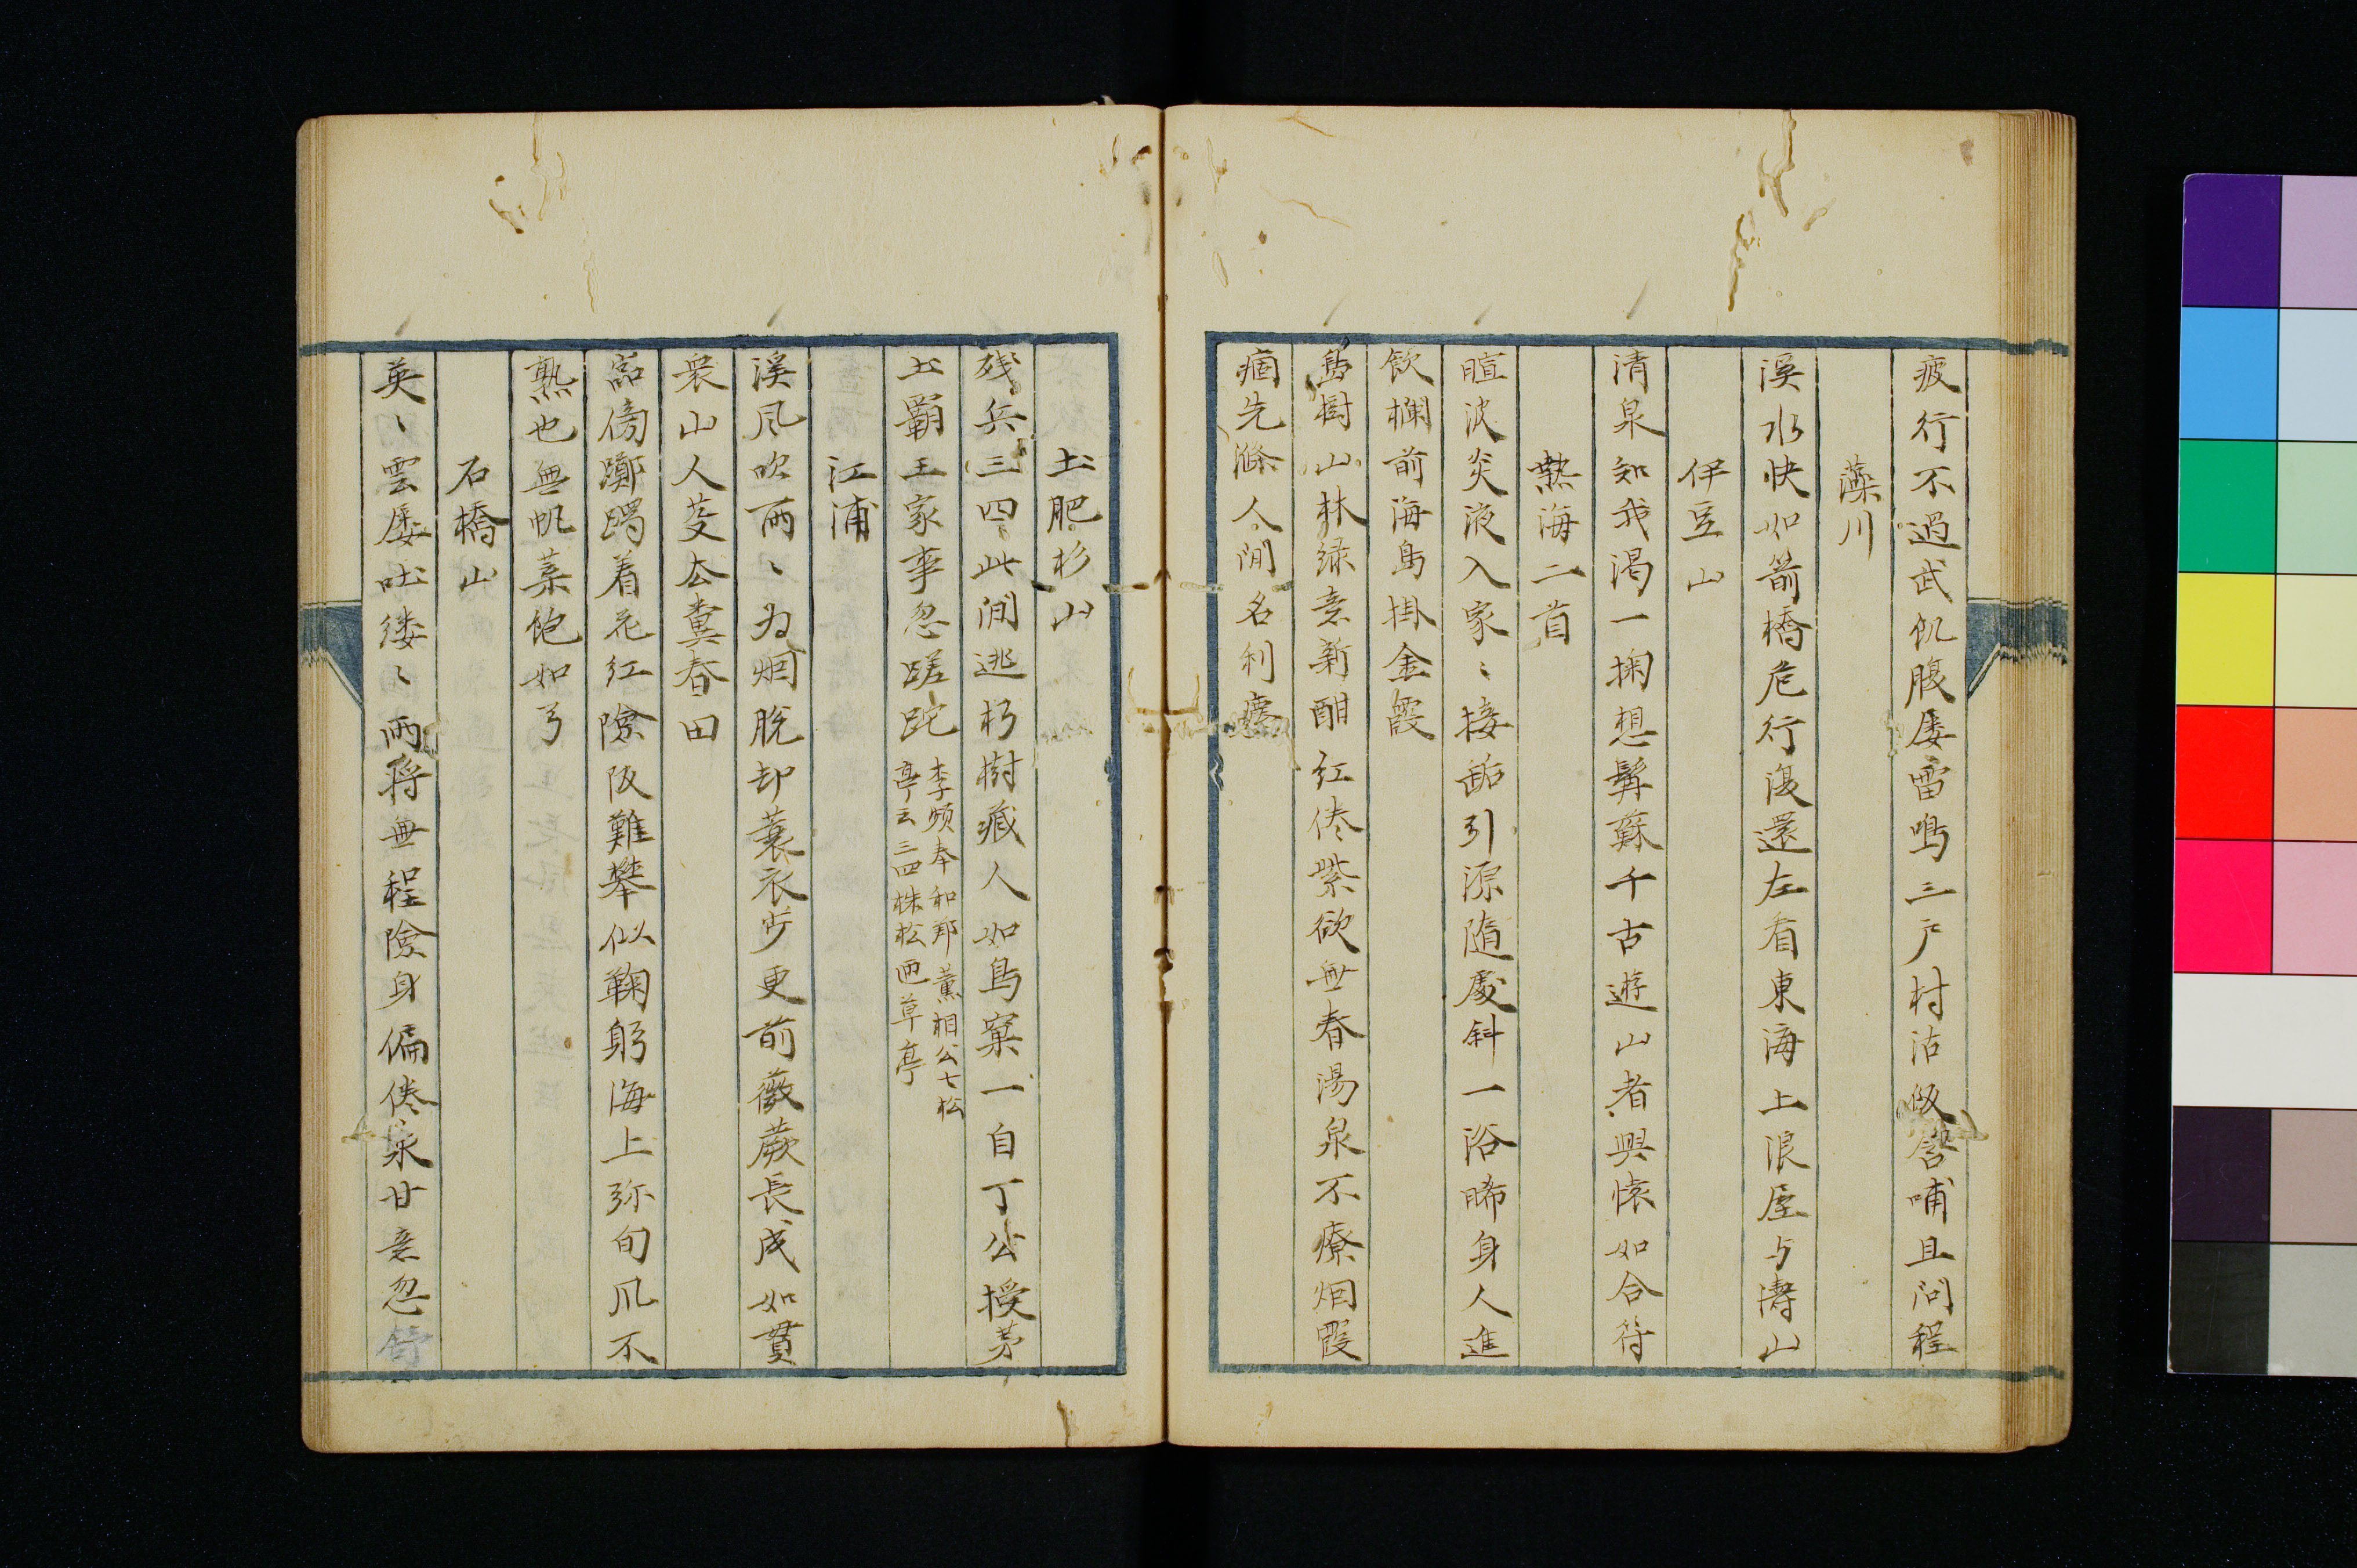 疲行不過武飢腹屡雷鳴三戸村沽飯含哺且問程
藻川
溪水快如箭橋危行復還左看東海上浪屋与濤山
伊豆山
清泉知我渇一掬想髯蘇千古遊山者興懐如合符
熱海二首
暄波炎液入家〻接笕引源随處斜一浴晞身人進
飲欄前海島掛金霞
島樹山林緑意新酣紅倦紫欲無春湯泉不療烟霞
痼先滌人間名利塵
土肥杉山
残兵三四此間逃朽樹蔵人如鳥窠一自丁公授茅
土覇王家事忽蹉跎
李頻奉和鄭薫相公七松
亭云三四株松匝草亭
江浦
溪風吹雨〻為烟脱却蓑衣步更前薇蕨長成如買
衆山人芟去糞春田
嵓傍躑躅着花紅険阪難攀似鞠躬海上弥旬風不
熟也無帆葉飽如弓
石橋山
英〻雲屡吐縷〻雨将無程険身偏倦泉甘意忽舒